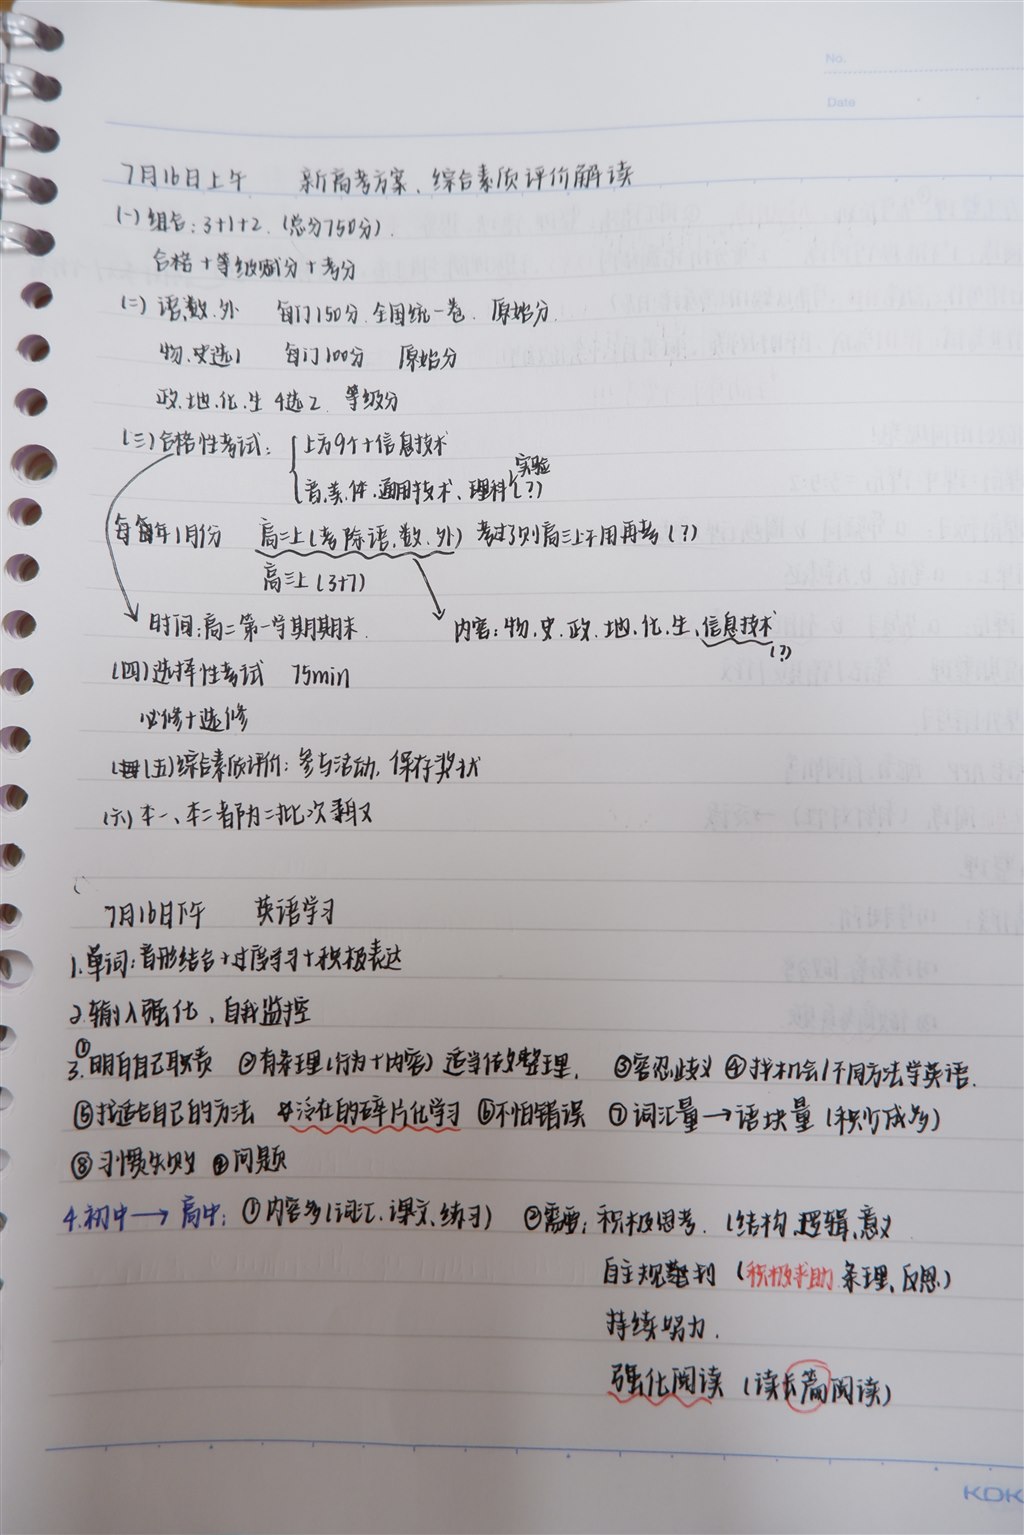 No.
Date
7月16日上午 新高考方案、综合素质评价解读
(一)组合:3+1+2.(总分750分).
合格+等级赋分+考分
(二)语、数、外 每门150分.全国统一卷. 原始分.
物、史选1 每门100分 原始分
政、地、化、生 4选2. 等级分
(三)合格性考试: 上方9个+信息技术
音、美、体、通用技术、理科实验(?)
每年1月份 高二上(考除语、数、外) 考过了则高三上不用再考(?)
高三上(3+7)
时间:高二第一学期期末. 内容:物、史、政、地、化、生、信息技术(?)
(四)选择性考试 75min
必修+选修
(五)综合素质评价:参与活动,保存奖状
(六)本一、本二都为二批次录取
7月16日下午 英语学习
1.单词:音形结合+过度学习+积极表达
2.输入强化、自我监控
3.①明白自己职责 ②有条理(行为+内容)适当做整理. ③容忍歧义 ④找机会/不同方法学英语.
⑤找适合自己的方法 泛在的碎片化学习 ⑥不怕错误 ⑦词汇量→语块量(积少成多)
⑧习惯失败 ⑨问题
4.初中→高中:①内容多(词汇、课文、练习) ②需要:积极思考.(结构、逻辑、意义
自主规划(积极求助、条理、反思)
持续努力.
强化阅读(读长篇阅读)
KOK